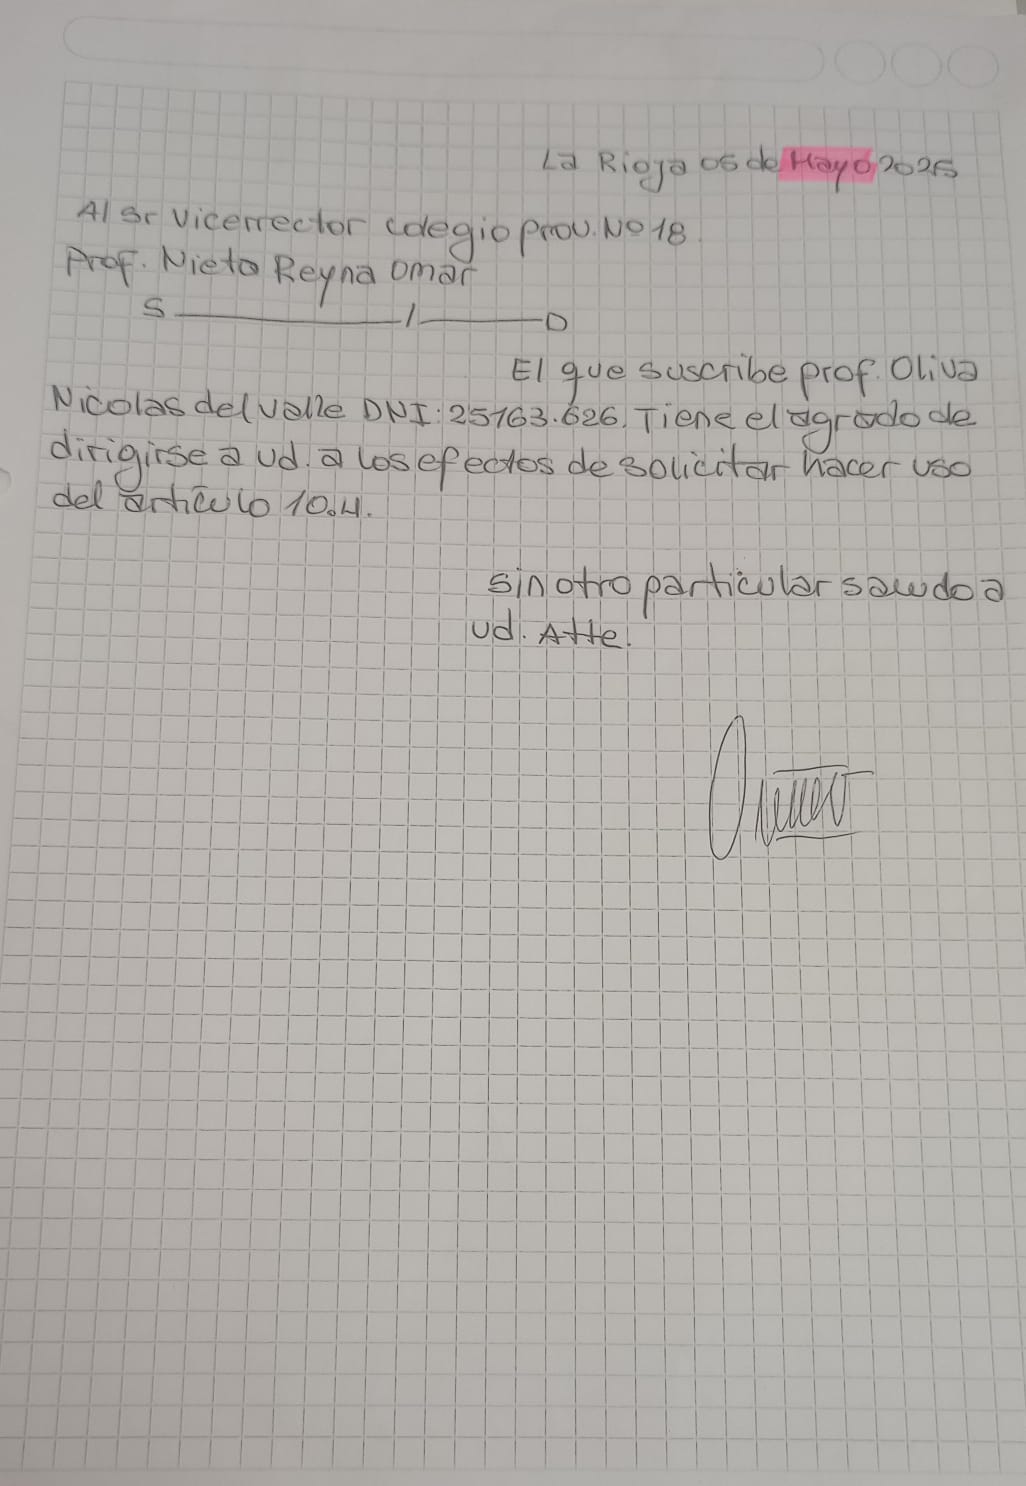 La Rioja 05 de Mayo 2025
Al Sr Vicerrector colegio prov. Nº 18
Prof. Nieto Reyna Omar
S / D
El que suscribe prof. Oliva
Nicolas del valle DNI: 25163.626. Tiene el agrado de
dirigirse a ud. a los efectos de solicitar hacer uso
del artículo 10.4.
sin otro particular saludo a
ud. Atte.